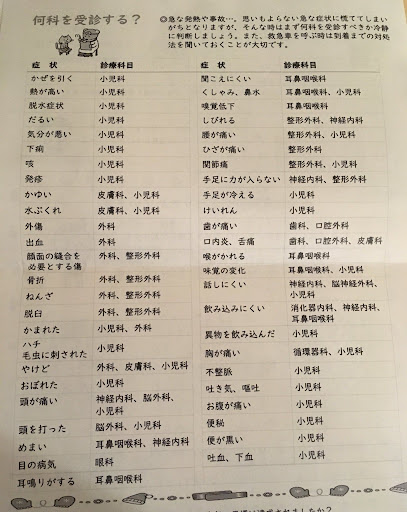 何科を受診する？
◎急な発熱や事故…。思いもよらない急な症状に慌ててしまい
がちとなりますが、そんな時はまず何科を受診すべきか冷静
に判断しましょう。また、救急車を呼ぶ時は到着までの対処
法を聞いておくことが大切です。
症　状　診療科目
かぜを引く　小児科
熱が高い　小児科
脱水症状　小児科
だるい　小児科
気分が悪い　小児科
下痢　小児科
咳　小児科
発疹　小児科
かゆい　皮膚科、小児科
水ぶくれ　皮膚科、小児科
外傷　外科
出血　外科
顔面の縫合を
必要とする傷　外科、整形外科
骨折　外科、整形外科
ねんざ　外科、整形外科
脱臼　外科、整形外科
かまれた　小児科、外科
ハチ
毛虫に刺された　小児科
やけど　外科、皮膚科、小児科
おぼれた　小児科
頭が痛い　神経内科、脳外科、
小児科
頭を打った　脳外科、小児科
めまい　耳鼻咽喉科、神経内科
目の病気　眼科
耳鳴りがする　耳鼻咽喉科
症　状　診療科目
聞こえにくい　耳鼻咽喉科
くしゃみ、鼻水　耳鼻咽喉科、小児科
嗅覚低下　耳鼻咽喉科
しびれる　整形外科、神経内科
腰が痛い　整形外科
ひざが痛い　整形外科
関節痛　整形外科、小児科
手足に力が入らない　神経内科、整形外科
手足が冷える　小児科
けいれん　小児科
歯が痛い　歯科、口腔外科
口内炎、舌痛　歯科、口腔外科、皮膚科
喉がかれる　耳鼻咽喉科
味覚の変化　耳鼻咽喉科、小児科
話しにくい　神経内科、脳神経外科、
小児科
飲み込みにくい　消化器内科、神経内科、
耳鼻咽喉科
異物を飲み込んだ　小児科
胸が痛い　循環器科、小児科
不整脈　小児科
吐き気、嘔吐　小児科
お腹が痛い　小児科
便秘　小児科
便が黒い　小児科
吐血、下血　小児科